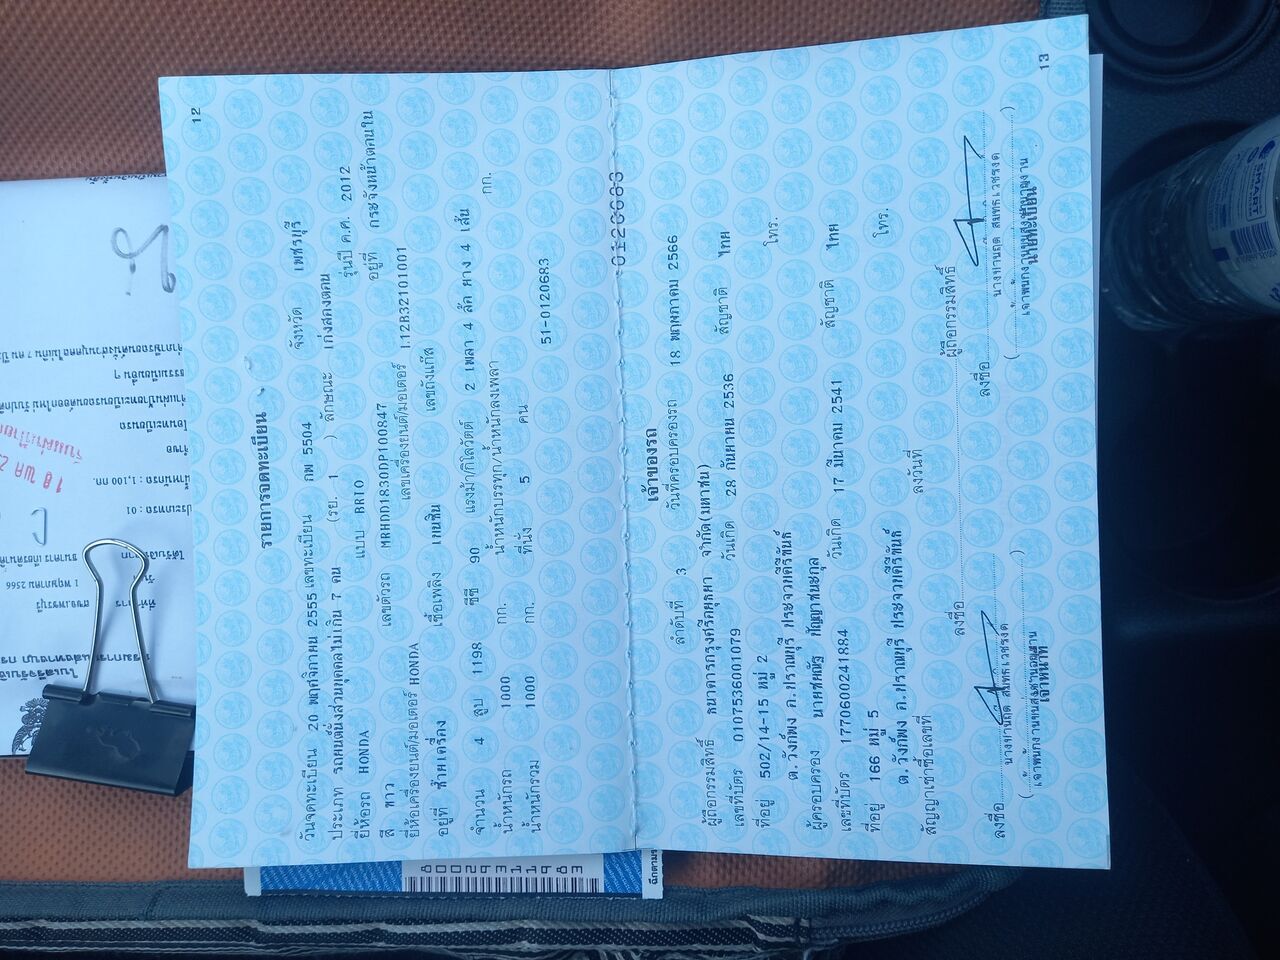 12
รายการจดทะเบียน
วันจดทะเบียน 20 พฤศจิกายน 2555 เลขทะเบียน กพ 5504 จังหวัด เพชรบุรี
ประเภท รถยนต์นั่งส่วนบุคคลไม่เกิน 7 คน (รย. 1 ) ลักษณะ เก๋งสองตอน
ยี่ห้อรถ HONDA แบบ BRIO รุ่นปี ค.ศ. 2012
สี ขาว เลขตัวรถ MRHDD1830DP100847 อยู่ที่ กระจังหน้าตคนใน
ยี่ห้อเครื่องยนต์/มอเตอร์ HONDA เลขเครื่องยนต์/มอเตอร์ L12B32101001
อยู่ที่ ท้ายเครื่อง เชื้อเพลิง เบนซิน เลขถังแก๊ส
จำนวน 4 สูบ 1198 ซีซี 90 แรงม้า/กิโลวัตต์ 2 เพลา 4 ล้อ ยาง 4 เส้น
น้ำหนักรถ 1000 กก. น้ำหนักบรรทุก/น้ำหนักลงเพลา กก.
น้ำหนักรวม 1000 กก. ที่นั่ง 5 คน 51-0120683
0120683
เจ้าของรถ
ลำดับที่ 3 วันที่ครอบครองรถ 18 พฤษภาคม 2566
ผู้ถือกรรมสิทธิ์ ธนาคารกรุงศรีอยุธยา จำกัด(มหาชน)
เลขที่บัตร 0107536001079 วันเกิด 28 กันยายน 2536 สัญชาติ ไทย
ที่อยู่ 502/14-15 หมู่ 2 โทร.
ต.วังก์พง อ.ปราณบุรี ประจวบคีรีขันธ์
ผู้ครอบครอง
เลขที่บัตร 1770600241884 วันเกิด 17 มีนาคม 2541 สัญชาติ ไทย
ที่อยู่ 166 หมู่ 5 โทร.
ต.วังก์พง อ.ปราณบุรี ประจวบคีรีขันธ์
สัญญาเช่าซื้อเลขที่ ลงวันที่
ลงชื่อ ผู้ถือกรรมสิทธิ์
ลงชื่อ ลงชื่อ
เจ้าหน้าที่ นายทะเบียน
13
1 พฤษภาคม 2566
น้ำหนักรถ : 1,100 กก.
SMART